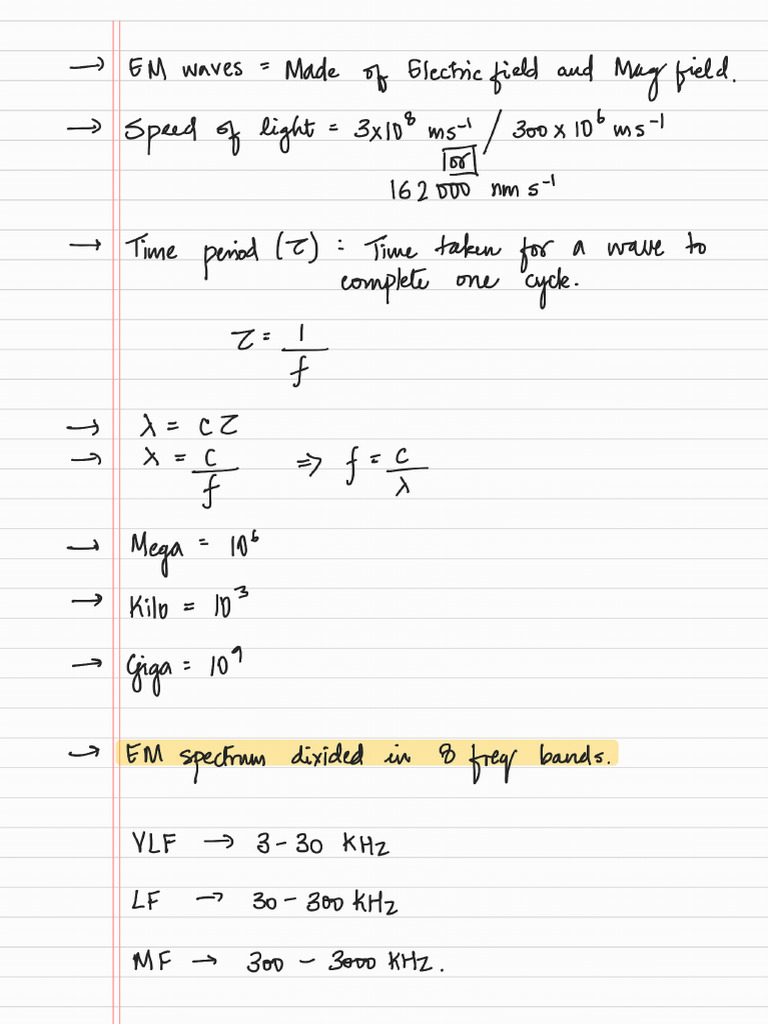 → EM waves = Made of Electric field and Mag field.
→ Speed of light = 3x10⁸ ms⁻¹ / 300 x 10⁶ ms⁻¹
or
162 000 nm s⁻¹
→ Time period (τ) : Time taken for a wave to
complete one cycle.
τ = 1/f
→ λ = cτ
→ λ = c/f ⇒ f = c/λ
→ Mega = 10⁶
→ Kilo = 10³
→ Giga = 10⁹
→ EM spectrum divided in 8 freq bands.
VLF → 3 - 30 KHz
LF → 30 - 300 KHz
MF → 300 - 3000 KHz.